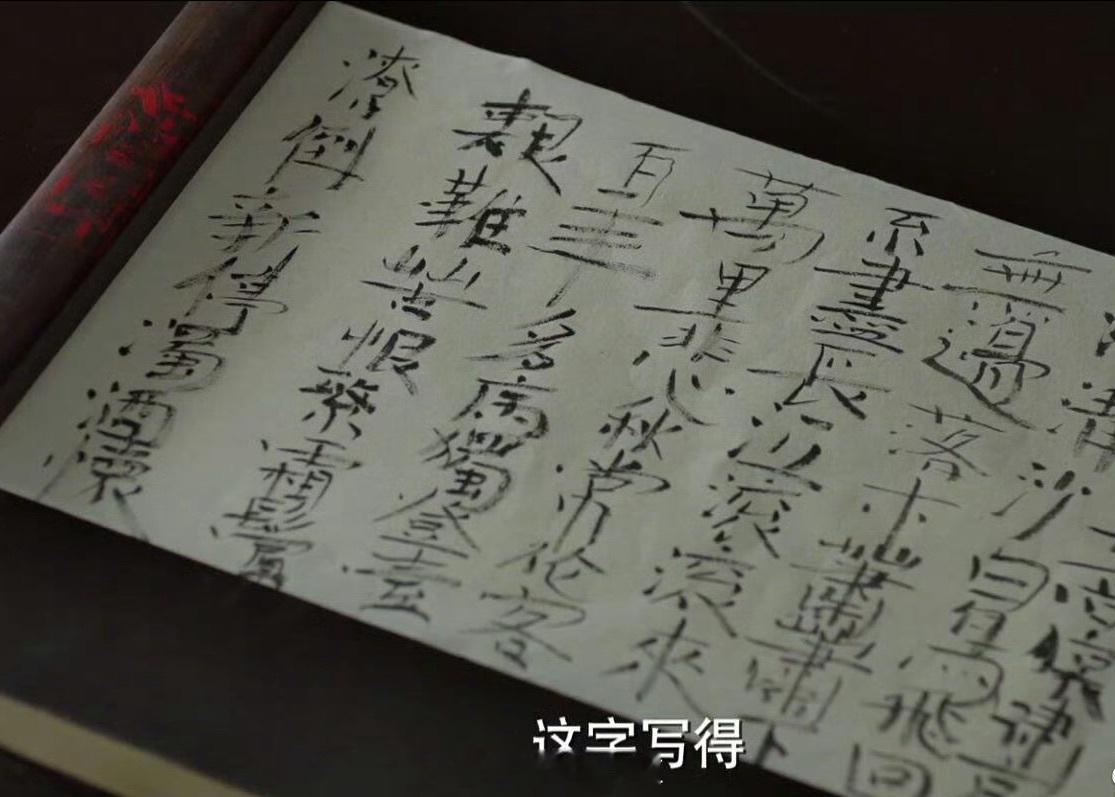 清沙白鳥飛回
無邊落木蕭蕭下
不盡長江滾滾來
萬里悲秋常作客
百年多病獨登臺
艱難苦恨繁霜鬢
潦倒新停濁酒
这字写得